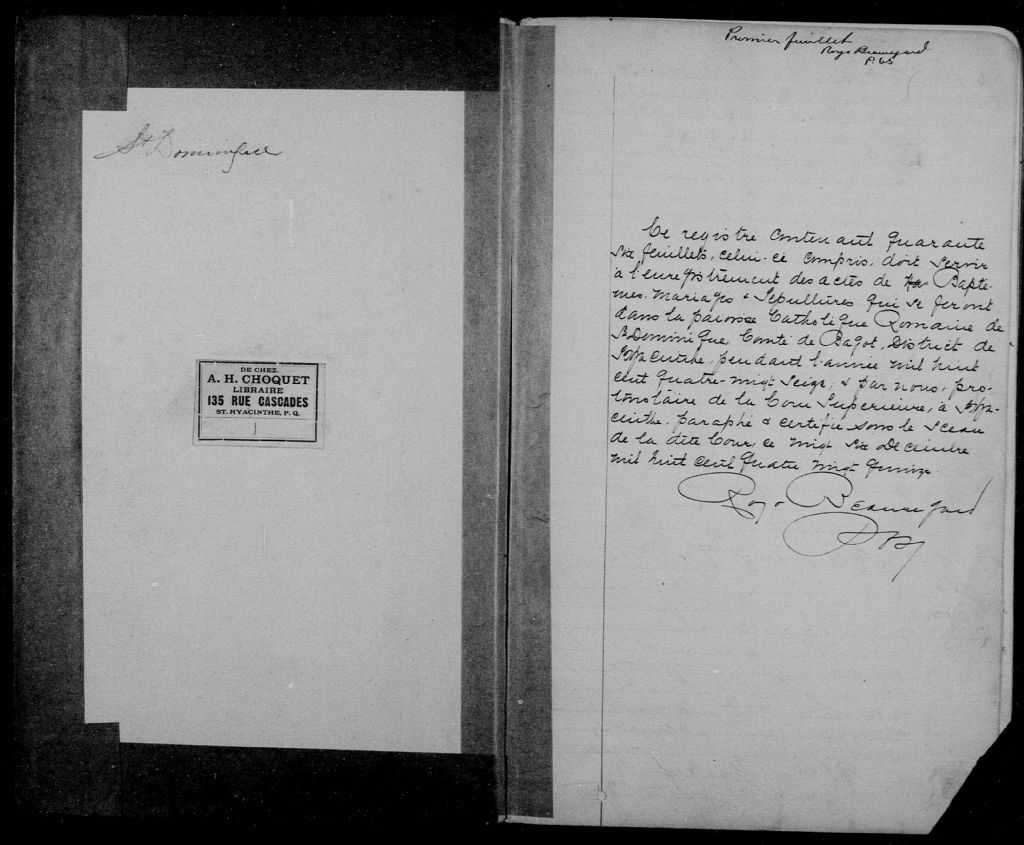 St Dominique
DE CHEZ
A. H. CHOQUET
LIBRAIRE
135 RUE CASCADES
ST. HYACINTHE, P. Q.
Premier feuillet
Roy & Beauregard
Ce registre contenant quarante
six feuillets, celui-ce compris, doit servir
à l'enregistrement des actes de Baptê-
mes, Mariages & Sépultures qui se feront
dans la paroisse Catholique Romaine de
St Dominique, Comté de Bagot, District de
St Hyacinthe, pendant l'année mil huit
cent quatre-vingt seize, & par nous, pro-
tonotaire de la Cour Supérieure, à St Hya-
cinthe, paraphé & certifié sous le sceau
de la dite Cour, ce vingt six Décembre
mil huit cent quatre vingt quinze.
Roy & Beauregard